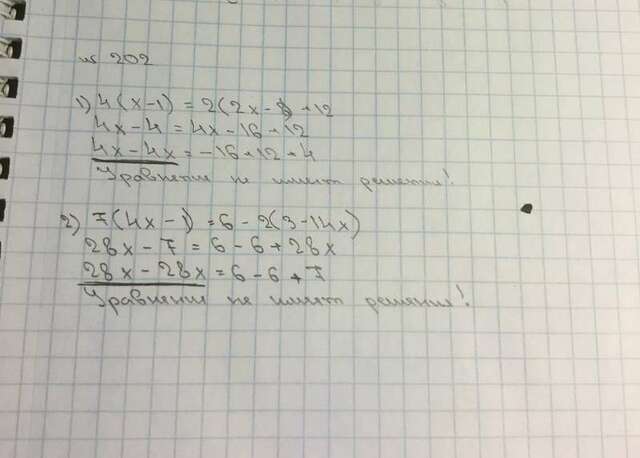 № 202
1) 4(x-1) = 2(2x-8)+12
4x-4 = 4x-16+12
4x-4x = -16+12+4
Уравнение не имеет решения!
2) 7(4x-1) = 6-2(3-14x)
28x-7 = 6-6+28x
28x-28x = 6-6+7
Уравнение не имеет решения!